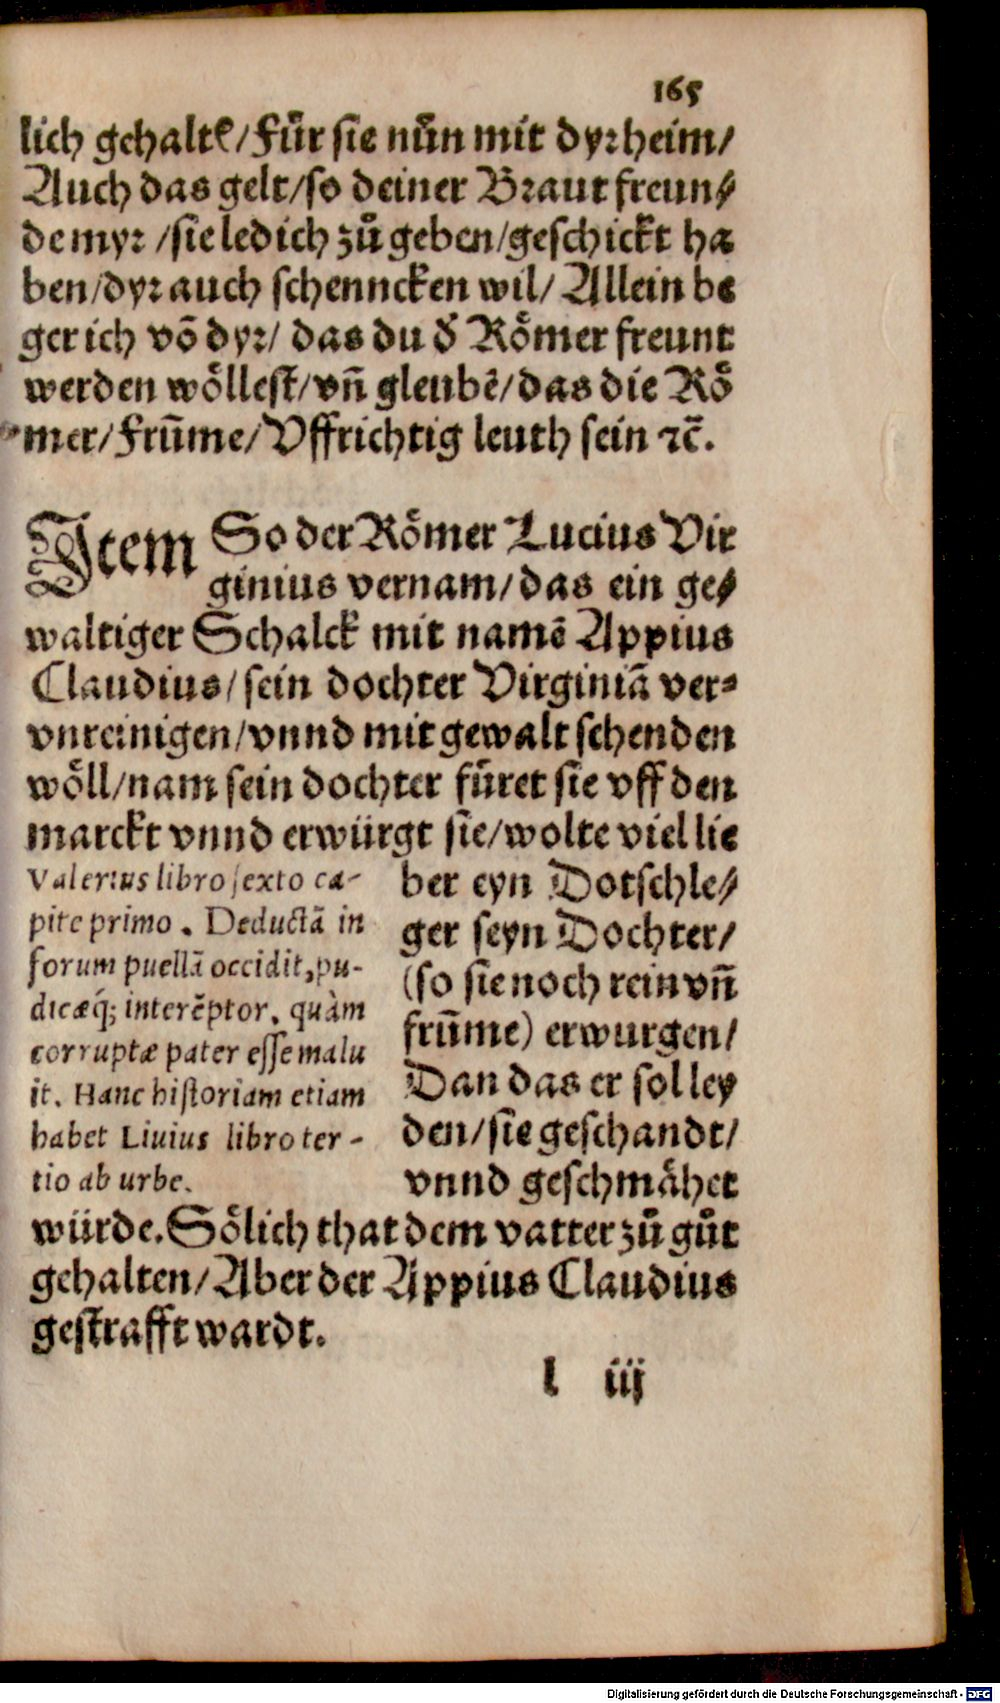 165
lich gehaltẽ/Für sie nůn mit dyr heim/
Auch das gelt/so deiner Braut freun⸗
de myr /sie ledich zů geben/geschickt ha
ben/dyr auch schenncken wil/ Allein be
ger ich võ dyr/ das du d̕ Römer freunt
werden wöllest/vñ gleubẽ/das die Rö
mer/Frũme/Vffrichtig leuth sein ꝛc̃.
Item So der Römer Lucius Vir
ginius vernam/das ein ge⸗
waltiger Schalck mit namẽ Appius
Claudius/sein dochter Virginiã ver⸗
vnreinigen/vnnd mit gewalt schenden
wöll/nam sein dochter füret sie vff den
marckt vnnd erwürgt sie/wolte viel lie
ber eyn Dotschle⸗
ger seyn Dochter/
(so sie noch rein vñ
frũme) erwurgen/
Dan das er sol ley
den/sie geschandt/
vnnd geschmähet
würde. Sölich that dem vatter zů gůt
gehalten/Aber der Appius Claudius
gestrafft wardt.
Valerius libro sexto ca-
pite primo. Deductã in
forum puellã occidit, pu-
dicæq́; interẽptor, quàm
corruptæ pater esse malu
it. Hanc historiam etiam
habet Liuius libro ter-
tio ab urbe.
l iij
Digitalisierung gefördert durch die Deutsche Forschungsgemeinschaft - DFG